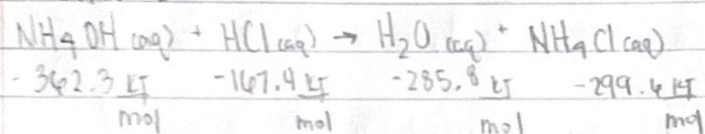 NH4OH (aq) + HCl (aq) → H2O (aq) + NH4Cl (aq)
-362.3 kJ/mol -167.4 kJ/mol -285.8 kJ/mol -299.4 kJ/mol